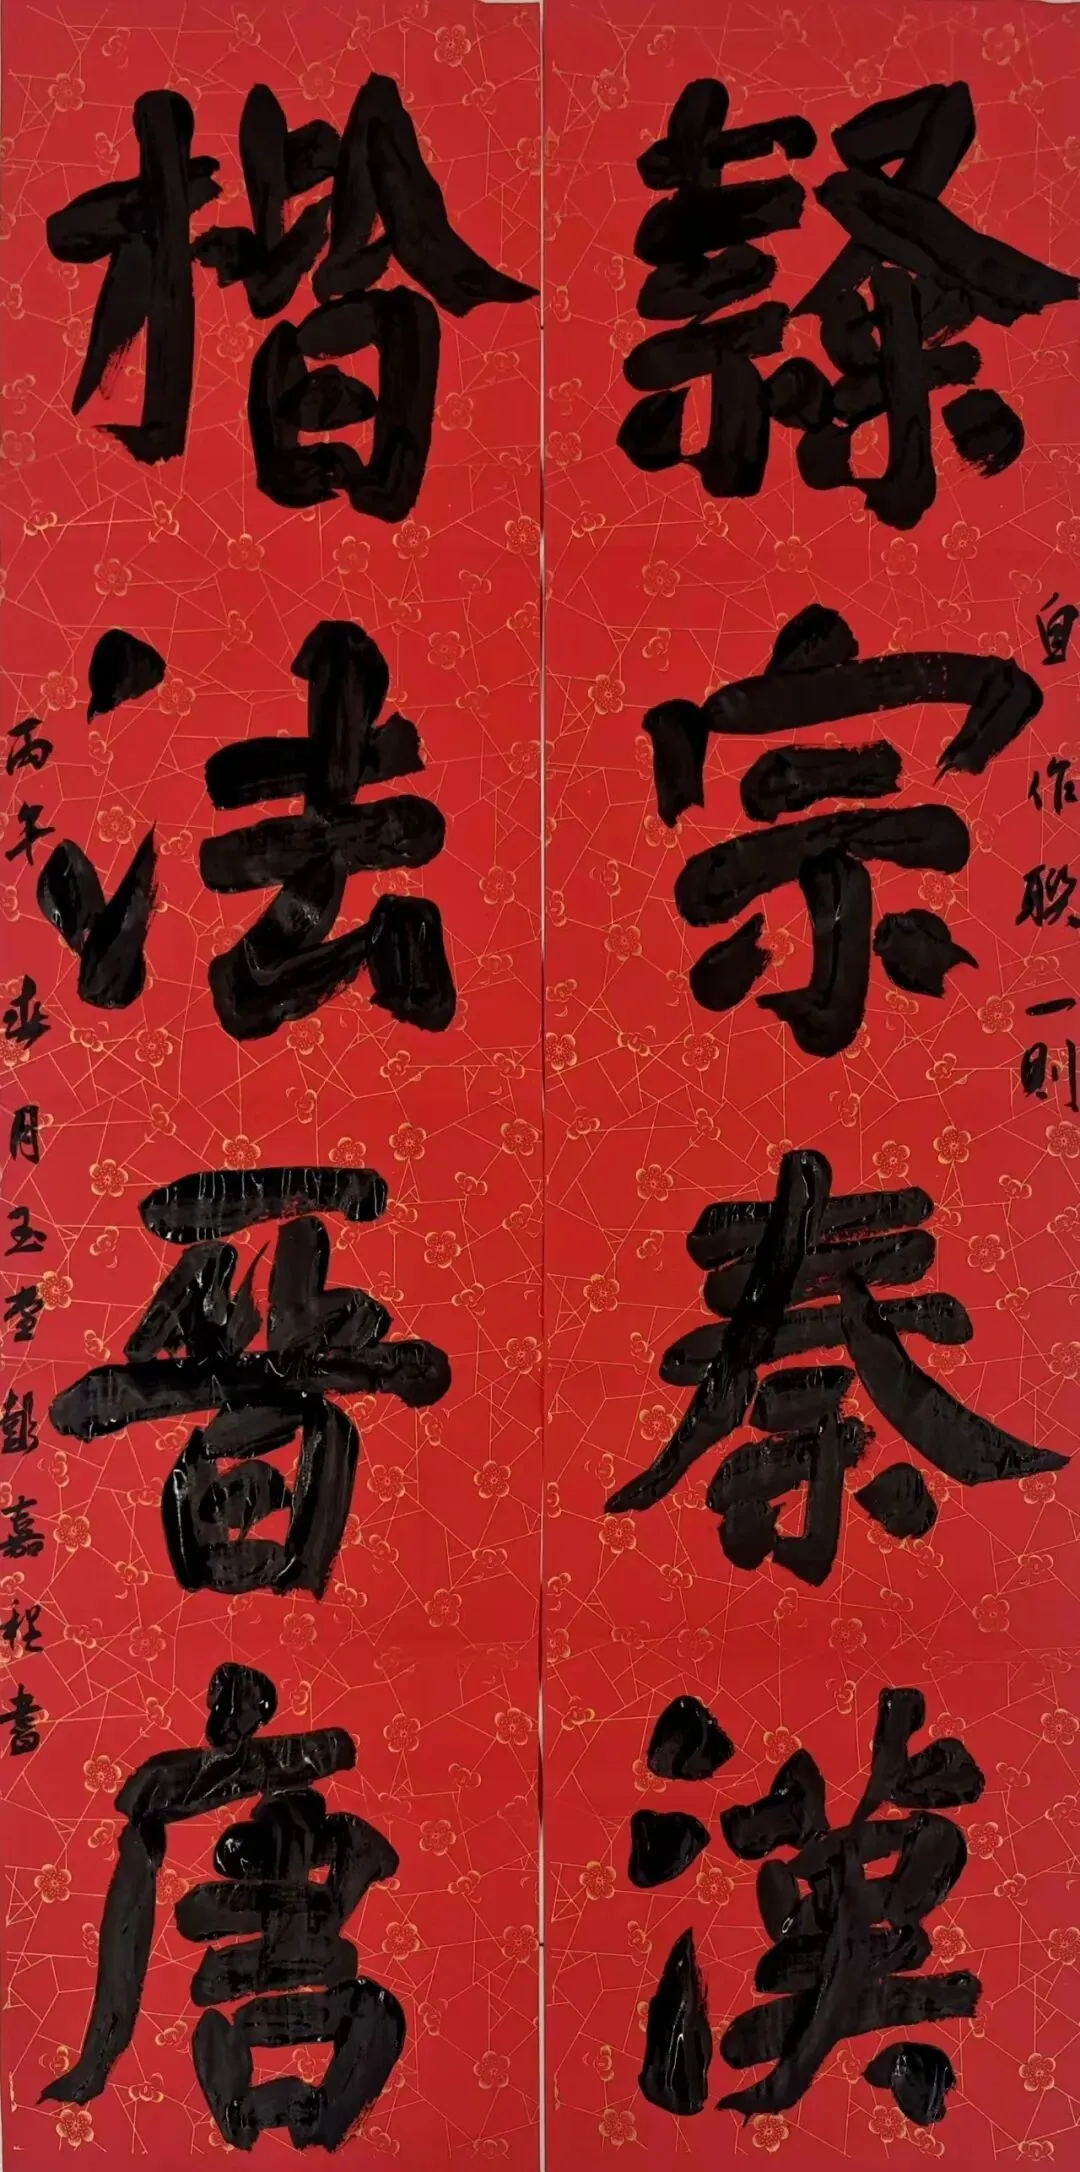 自作联一则
隸宗秦漢
楷法晉唐
丙午春月玉堂彭嘉程書